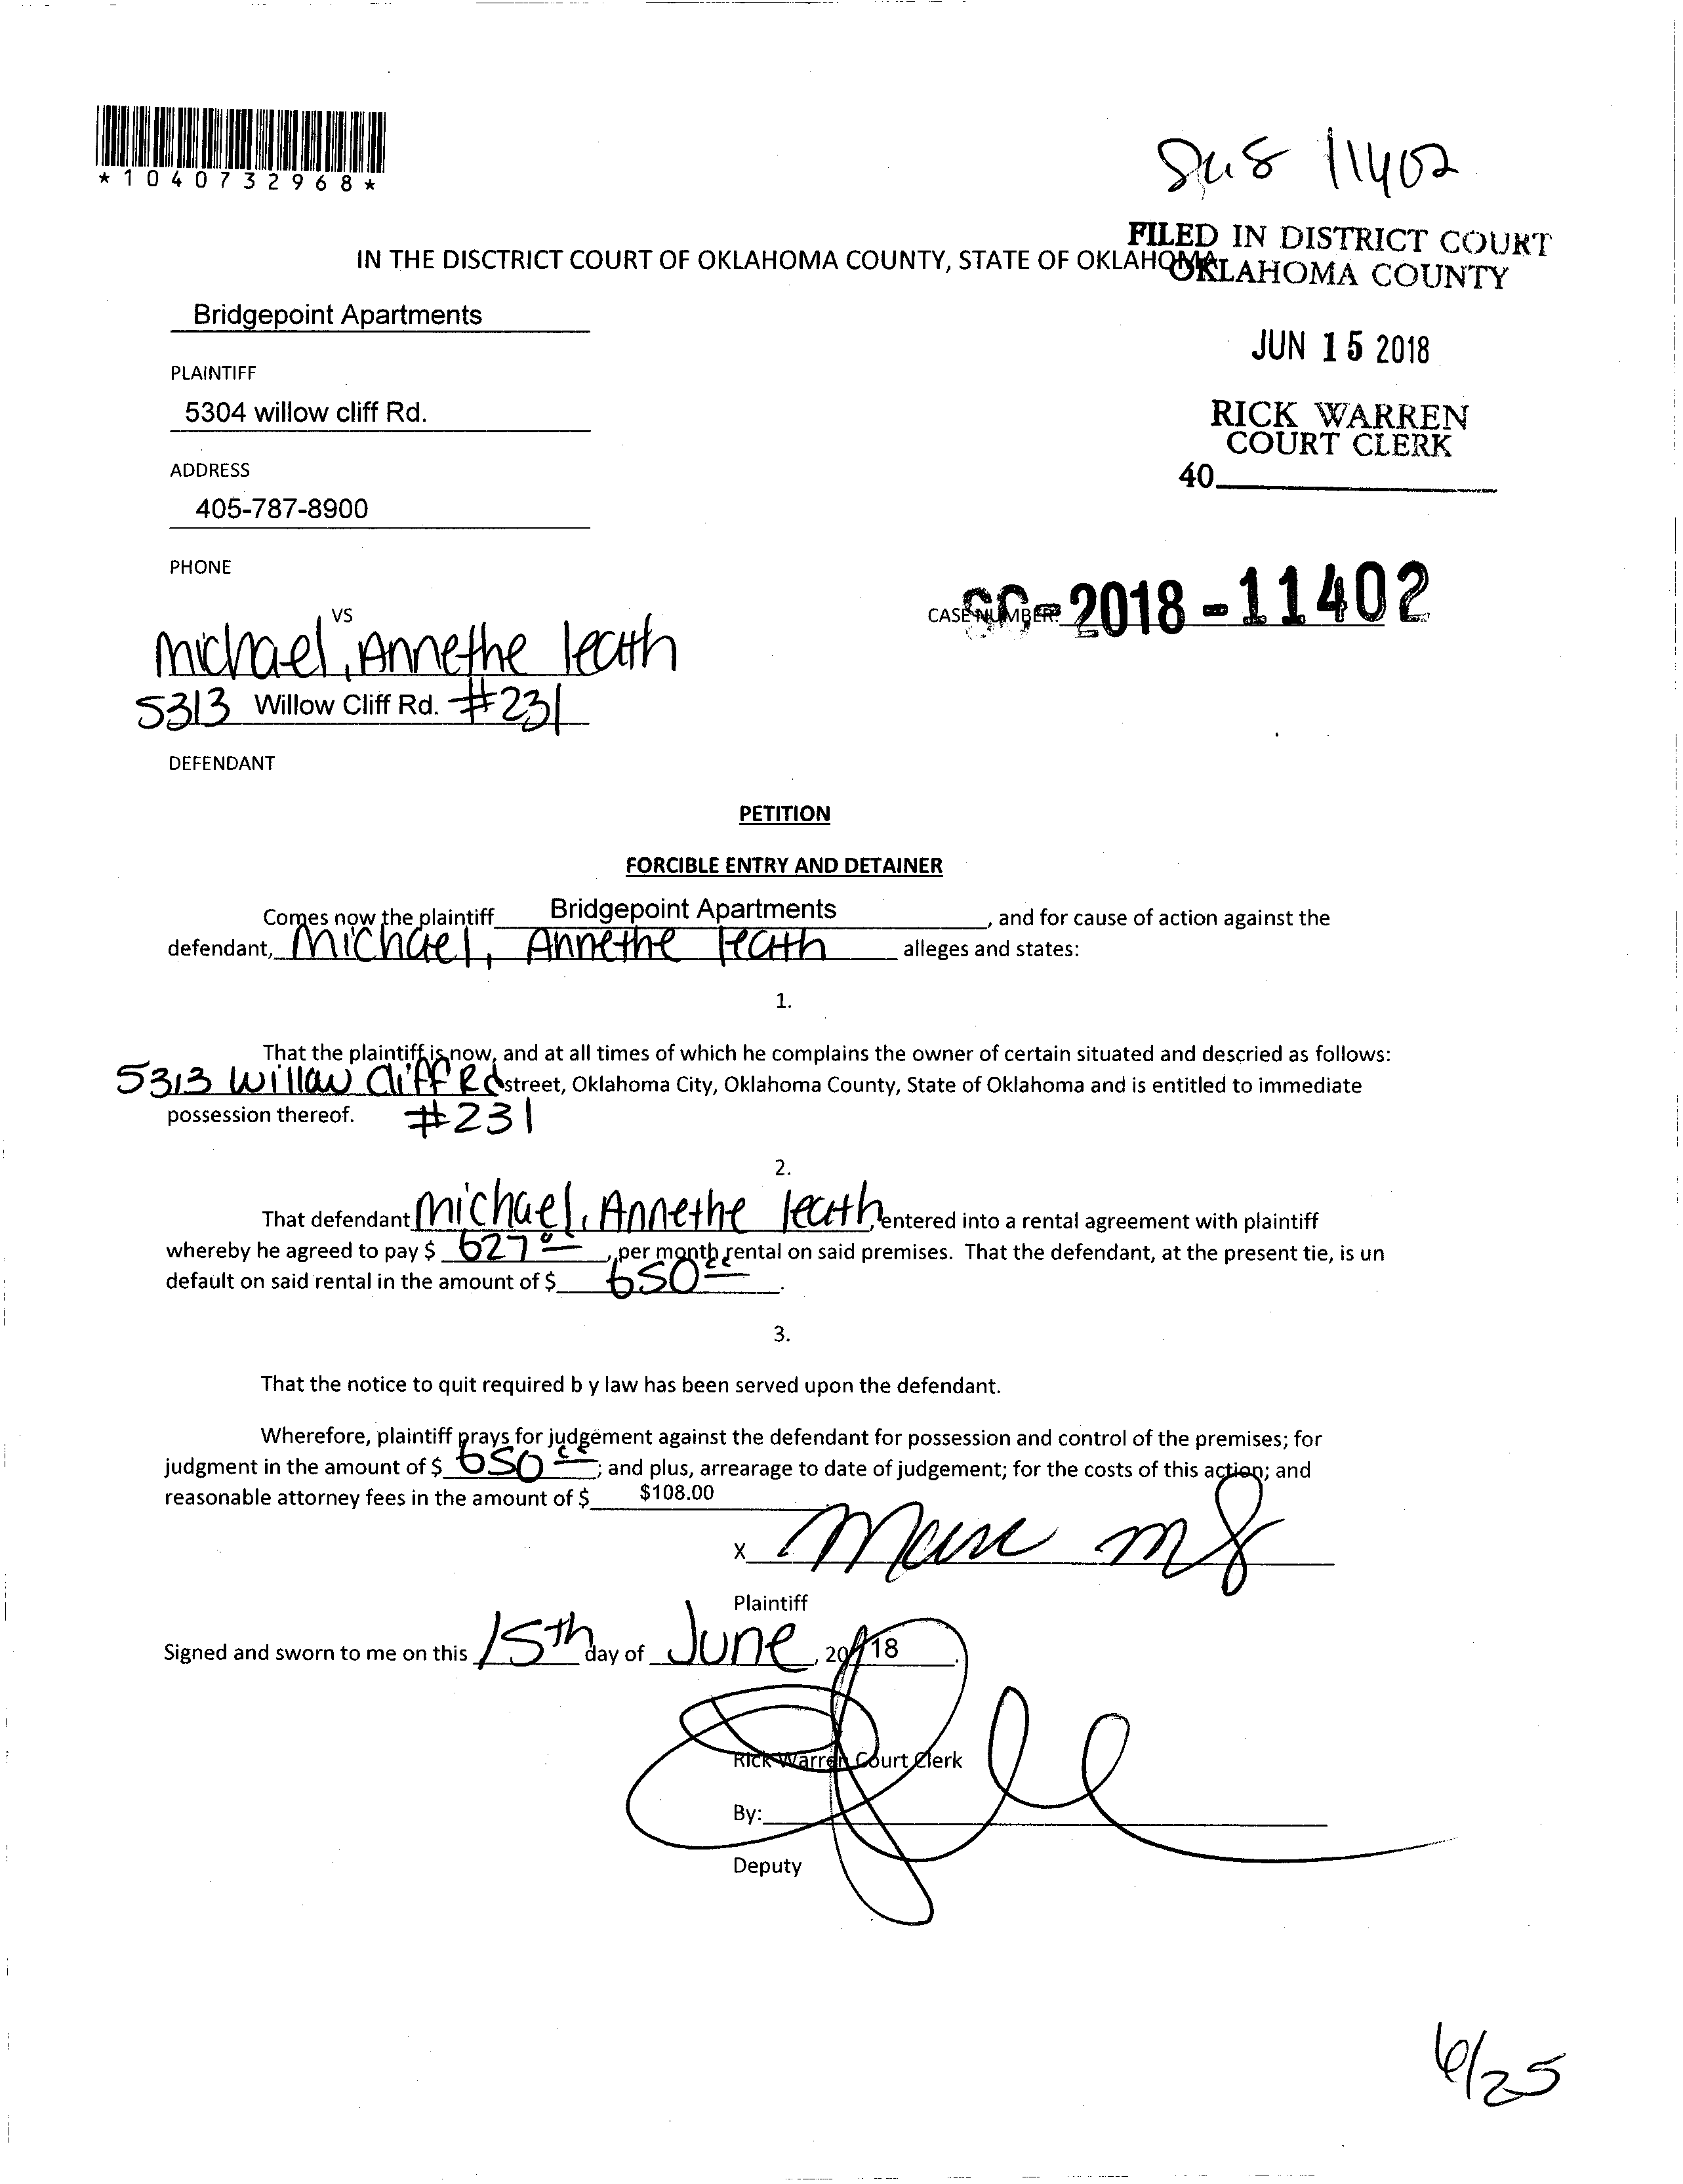 *1040732968*
11402
FILED IN DISTRICT COURT
OKLAHOMA COUNTY
IN THE DISCTRICT COURT OF OKLAHOMA COUNTY, STATE OF OKLAHOMA
Bridgepoint Apartments
JUN 15 2018
PLAINTIFF
5304 willow cliff Rd.
RICK WARREN
COURT CLERK
ADDRESS
40
405-787-8900
PHONE
VS
CASE NUMBER: SC-2018-11402
Michael, Annethe leath
5313 Willow Cliff Rd. #231
DEFENDANT
PETITION
FORCIBLE ENTRY AND DETAINER
Comes now the plaintiff Bridgepoint Apartments, and for cause of action against the
defendant, Michael, Annethe leath alleges and states:
1.
That the plaintiff is now, and at all times of which he complains the owner of certain situated and descried as follows:
5313 Willow Cliff Rd street, Oklahoma City, Oklahoma County, State of Oklahoma and is entitled to immediate
possession thereof. #231
2.
That defendant Michael, Annethe leath, entered into a rental agreement with plaintiff
whereby he agreed to pay $ 627, per month rental on said premises. That the defendant, at the present tie, is un
default on said rental in the amount of $ 650.
3.
That the notice to quit required b y law has been served upon the defendant.
Wherefore, plaintiff prays for judgement against the defendant for possession and control of the premises; for
judgment in the amount of $ 650; and plus, arrearage to date of judgement; for the costs of this action; and
reasonable attorney fees in the amount of $ $108.00
X
Plaintiff
Signed and sworn to me on this 15th day of June, 2018.
Rick Warren Court Clerk
By:
Deputy
6/25